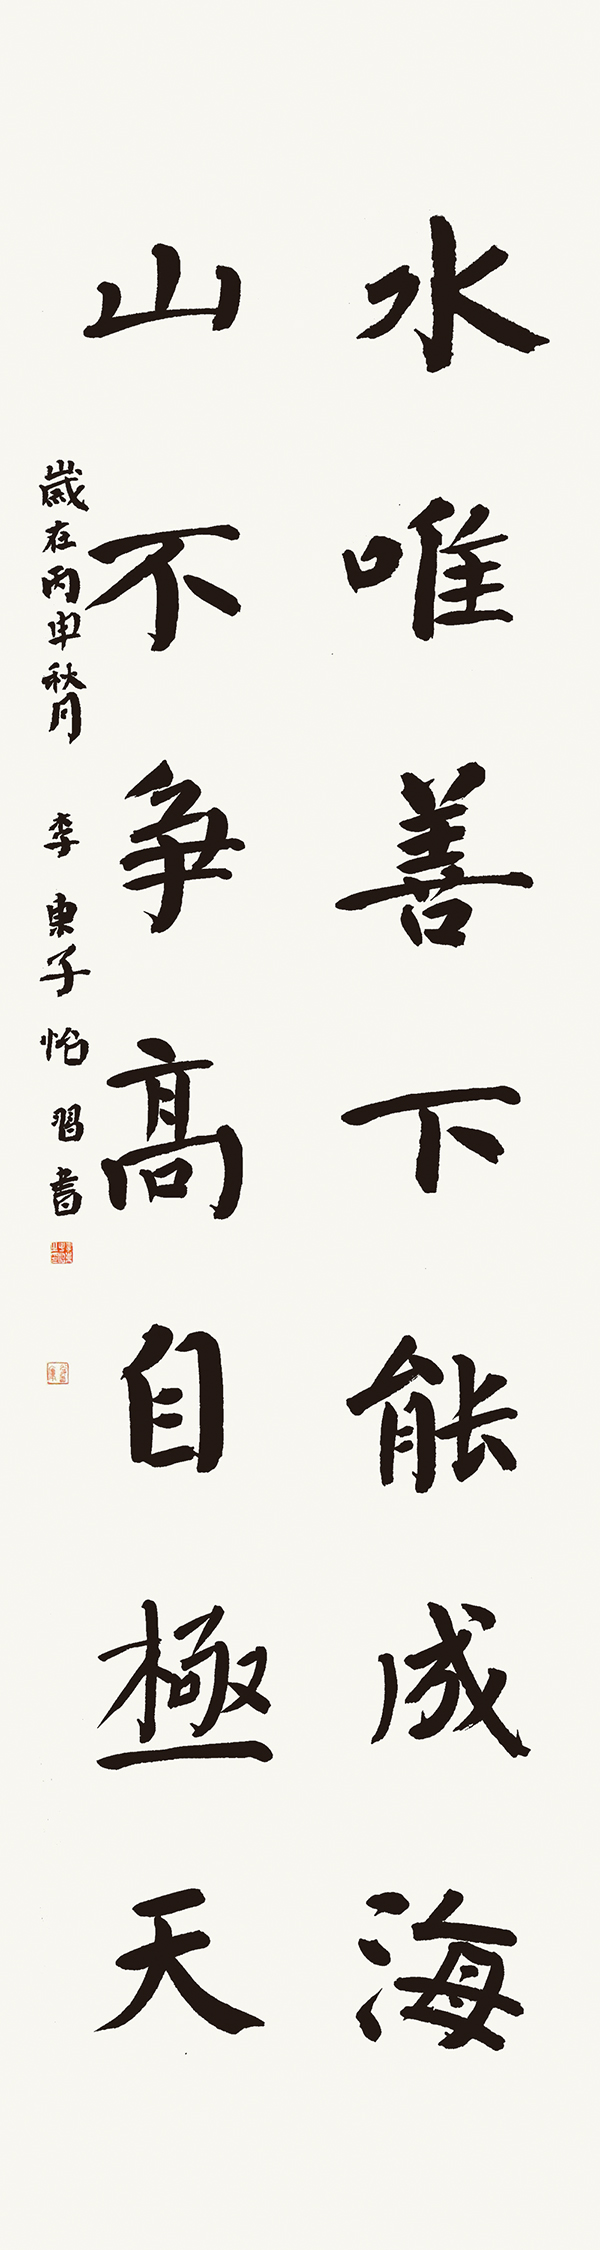 水唯善下能成海
山不爭高自極天
歲在丙申秋月 李庚子怡習書